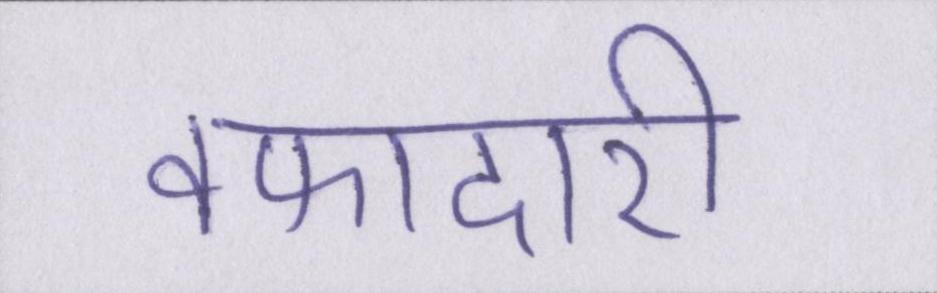 वफादारी